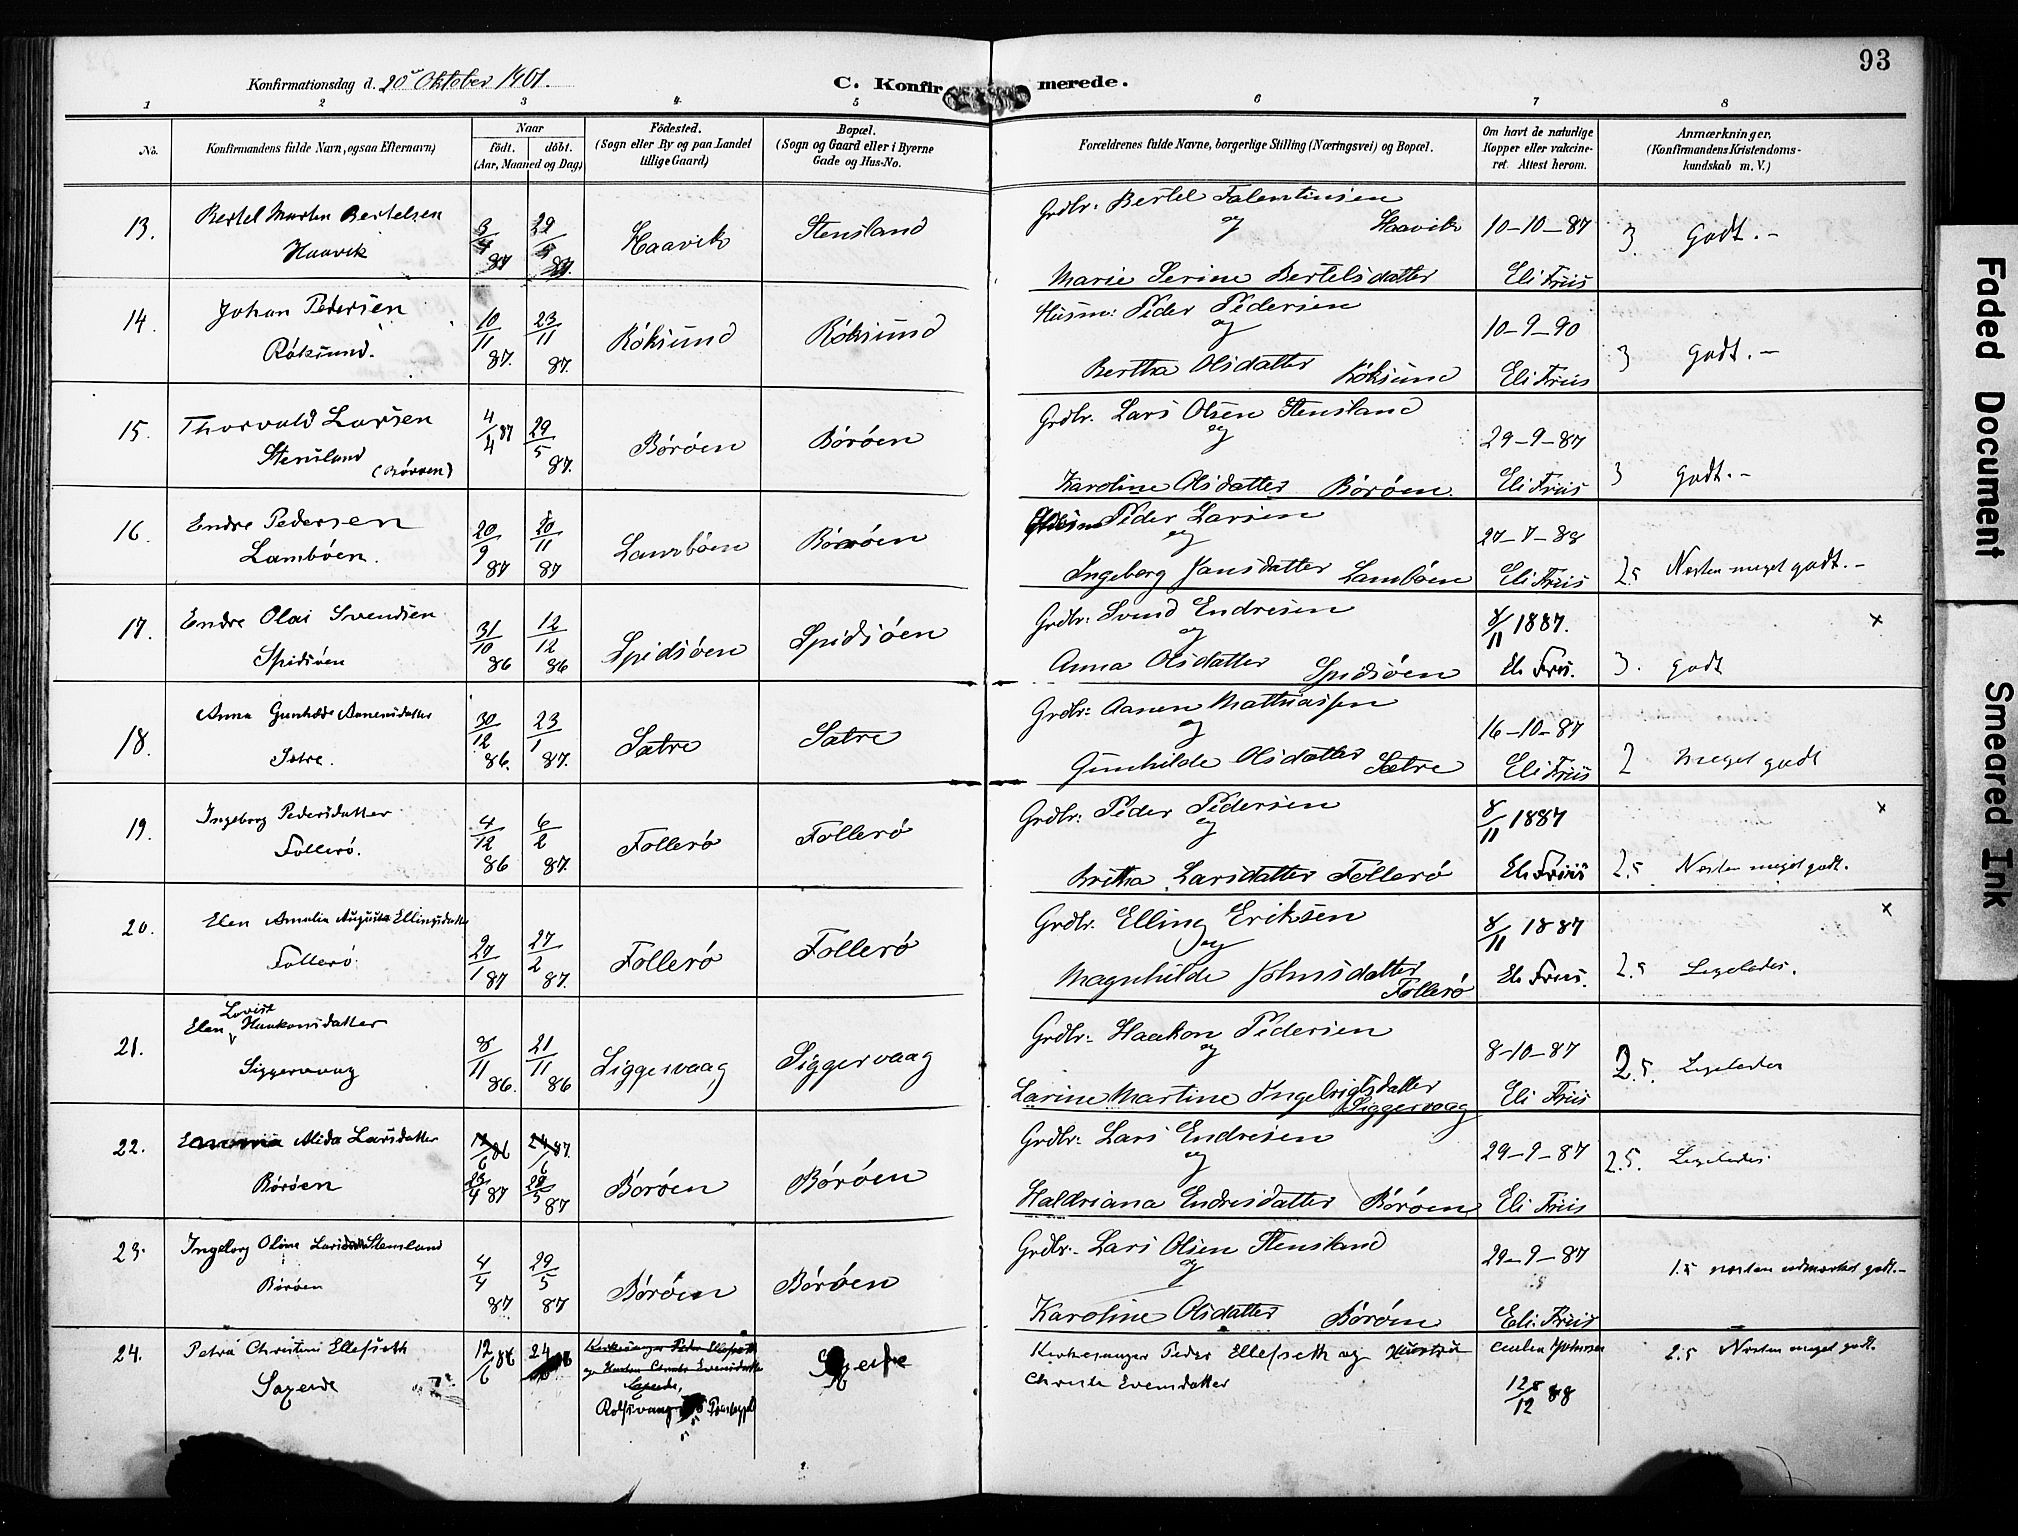 93
Konfirmationsdag d. 20de Oktober 1901.
C. Konfirmerede.
1 2 3 4 5 6 7 8
No.
Konfirmandens fulde Navn, ogsaa Efternavn)
Naar
födt. döbt.
(Aar, Maaned og Dag)
Födested.
(Sogn eller By og paa Landet
tillige Gaard)
Bopæl.
(Sogn og Gaard eller i Byerne
Gade og Hus-No.
Forældrenes fulde Navne, borgerlige Stilling (Næringsvei) og Bopæl.
Om havt de naturlige
Kopper eller vakcine-
ret. Attest herom.
Anmærkninger,
(Konfirmandens Kristendoms-
kundskab m. V.)
13. Bertel Martin Bertelsen
Haavik
87
29
Haavik
Stensland
Grdbr. Bertel Falentinsen
og Haavik
Marie Serine Bertelsdatter
10-10-87
Eli Friis
3 Godt.-
14. Johan Pedersen
Röksund.
10/11 87.
23/11 87.
Röksund
Röksund
Husm: Peder Pedersen
og
Bertha Olsdatter Röksund
10-9-90
Eli Friis
3 Godt.-
15. Thorvald Larsen
Stensland (Böröen)
4/4 87
29/5 87.
Böröen
Böröen
Grdbr. Lars Olsen Stensland
og
Karoline Olsdatter Böröen.
29-9-87
Eli Friis
3 Godt.-
16. Endre Pedersen
Lamböen.
20/9 87
20/11 87
Lamböen
Böröen
Peder Larsen
og
Ingeborg Jansdatter Lamböen
Eli Friis
2.5 Næsten meget godt.-
17. Endre Olai Svendsen
Spidsöen
31/10 86
12/12 86
Spidsöen
Spidsöen
Grdbr: Svend Endresen
og
Anna Olsdatter Spidsöen
8/11 1887.
Eli Friis.
3. godt
x
18. Anna Gunhilde Aanensdatter
Sætre.
30/12 86.
23/1 87.
Sætre
Sætre
Grdbr: Aanen Mathiassen
og
Gunhilde Olsdatter Sætre
16-10-87
Eli Friis
2 meget godt
19. Ingeborg Pedersdatter
Follerö.
4/12 86
6/2 87.
Follerö
Follerö
Grdbr: Peder Pedersen
og
Britha Larsdatter Follerö
8/11 1887
Eli Friis
2.5 Næsten meget godt.
x
20. Elen Amalia Augusta Ellingsdatter
Follerö
27/1 87
27/2 87.
Follerö
Follerö
Grdbr. Elling Eriksen
og
Magnhilde Johnsdatter
Follerö
8/11 1887
Eli Friis.
2.5 Ligeledes.
x
21. Elen Lovise Haakonsdatter
Siggervaag
8/11 86.
21/11 86
Siggervaag
Siggervaag
Grdbr: Haakon Pedersen
og
Larine Martine Ingebrigtsdatter
Siggervaag
8-10-87
Eli Friis
2.5. Ligeledes
22. Alida Larsdatter
Böröen
87
87
Böröen
Böröen
Grdbr: Lars Endresen
og
Haldriana Endresdatter Böröen
29-9-87
Eli Friis
2.5. Ligeledes.
23. Ingeborg Oline Stensland
Böröen
4/4 87
29/5 87
Böröen
Böröen
Grdbr. Lars Olsen Stensland
og
Karoline Olsdatter Böröen
29-9-87
Eli Friis
1.5 næsten udmærket godt.-
24. Petra Christine Ellefseth
12/6 86
24
Kirkesanger Peder Ellefseth
Rolfsvaag
Kirkesanger Peder Ellefseth og Hustru
12/12 88
2.5 Næsten meget godt.
Faded Document
Smeared Ink